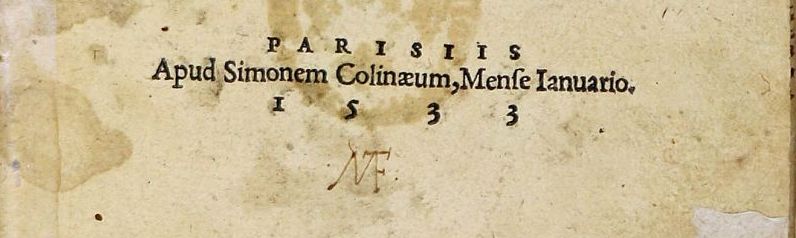 PARISIIS
Apud Simonem Colinæum, Menſe Ianuario.
1533
NF